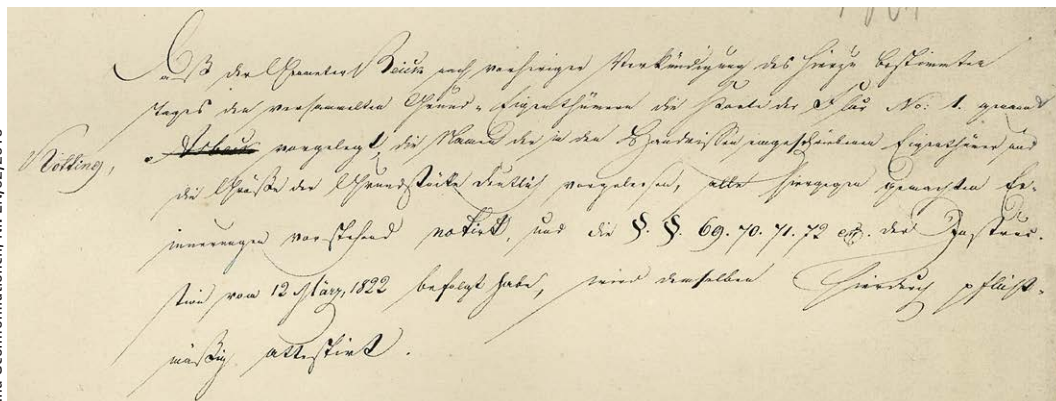 Daß der Geometer Beick nach vorheriger Verkündigung des hierzu bestimmten
Tages den versammelten Grund-Eigenthümern die Karte der Flur No: 1. genannt
Nötting, vorgelegt, die Namen der in den Handrissen eingeschriebenen Eigenthümer und
die Größe der Grundstücke deutlich vorgelesen, alle hiergegen gemachten Er-
innerungen vorstehend notirt, und die §. §. 69. 70. 71. 72 etc. der Instruc-
tion vom 12 März, 1822 befolgt habe, wird demselben hierdurch pflicht-
mäßig attestirt.